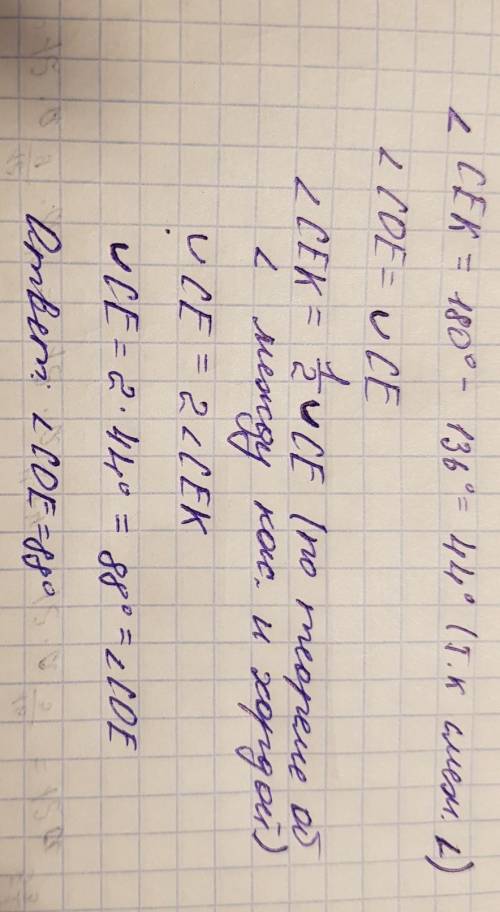 ∠ CEK = 180° - 136° = 44° (т.к смеж. ∠)
∠ COE = ◡ CE
∠ CEK = 1/2 ◡ CE (по теореме об
∠ между кас. и хордой)
◡ CE = 2 ∠ CEK
◡ CE = 2 · 44° = 88° = ∠ COE
Ответ: ∠ COE = 88°